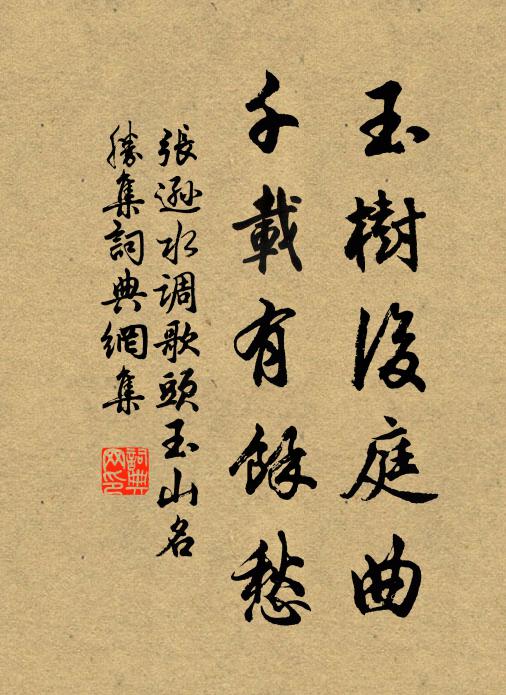 玉樹後庭曲
千載有餘愁
張遜水调歌頭玉山名
勝集詞典網集
詞典网印